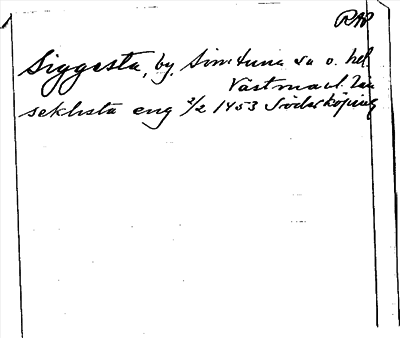 RAP
Siggesta, by, Simtuna sn o. hd.
Västmanl. län
seklista eng 2/2 1453 Söderköping